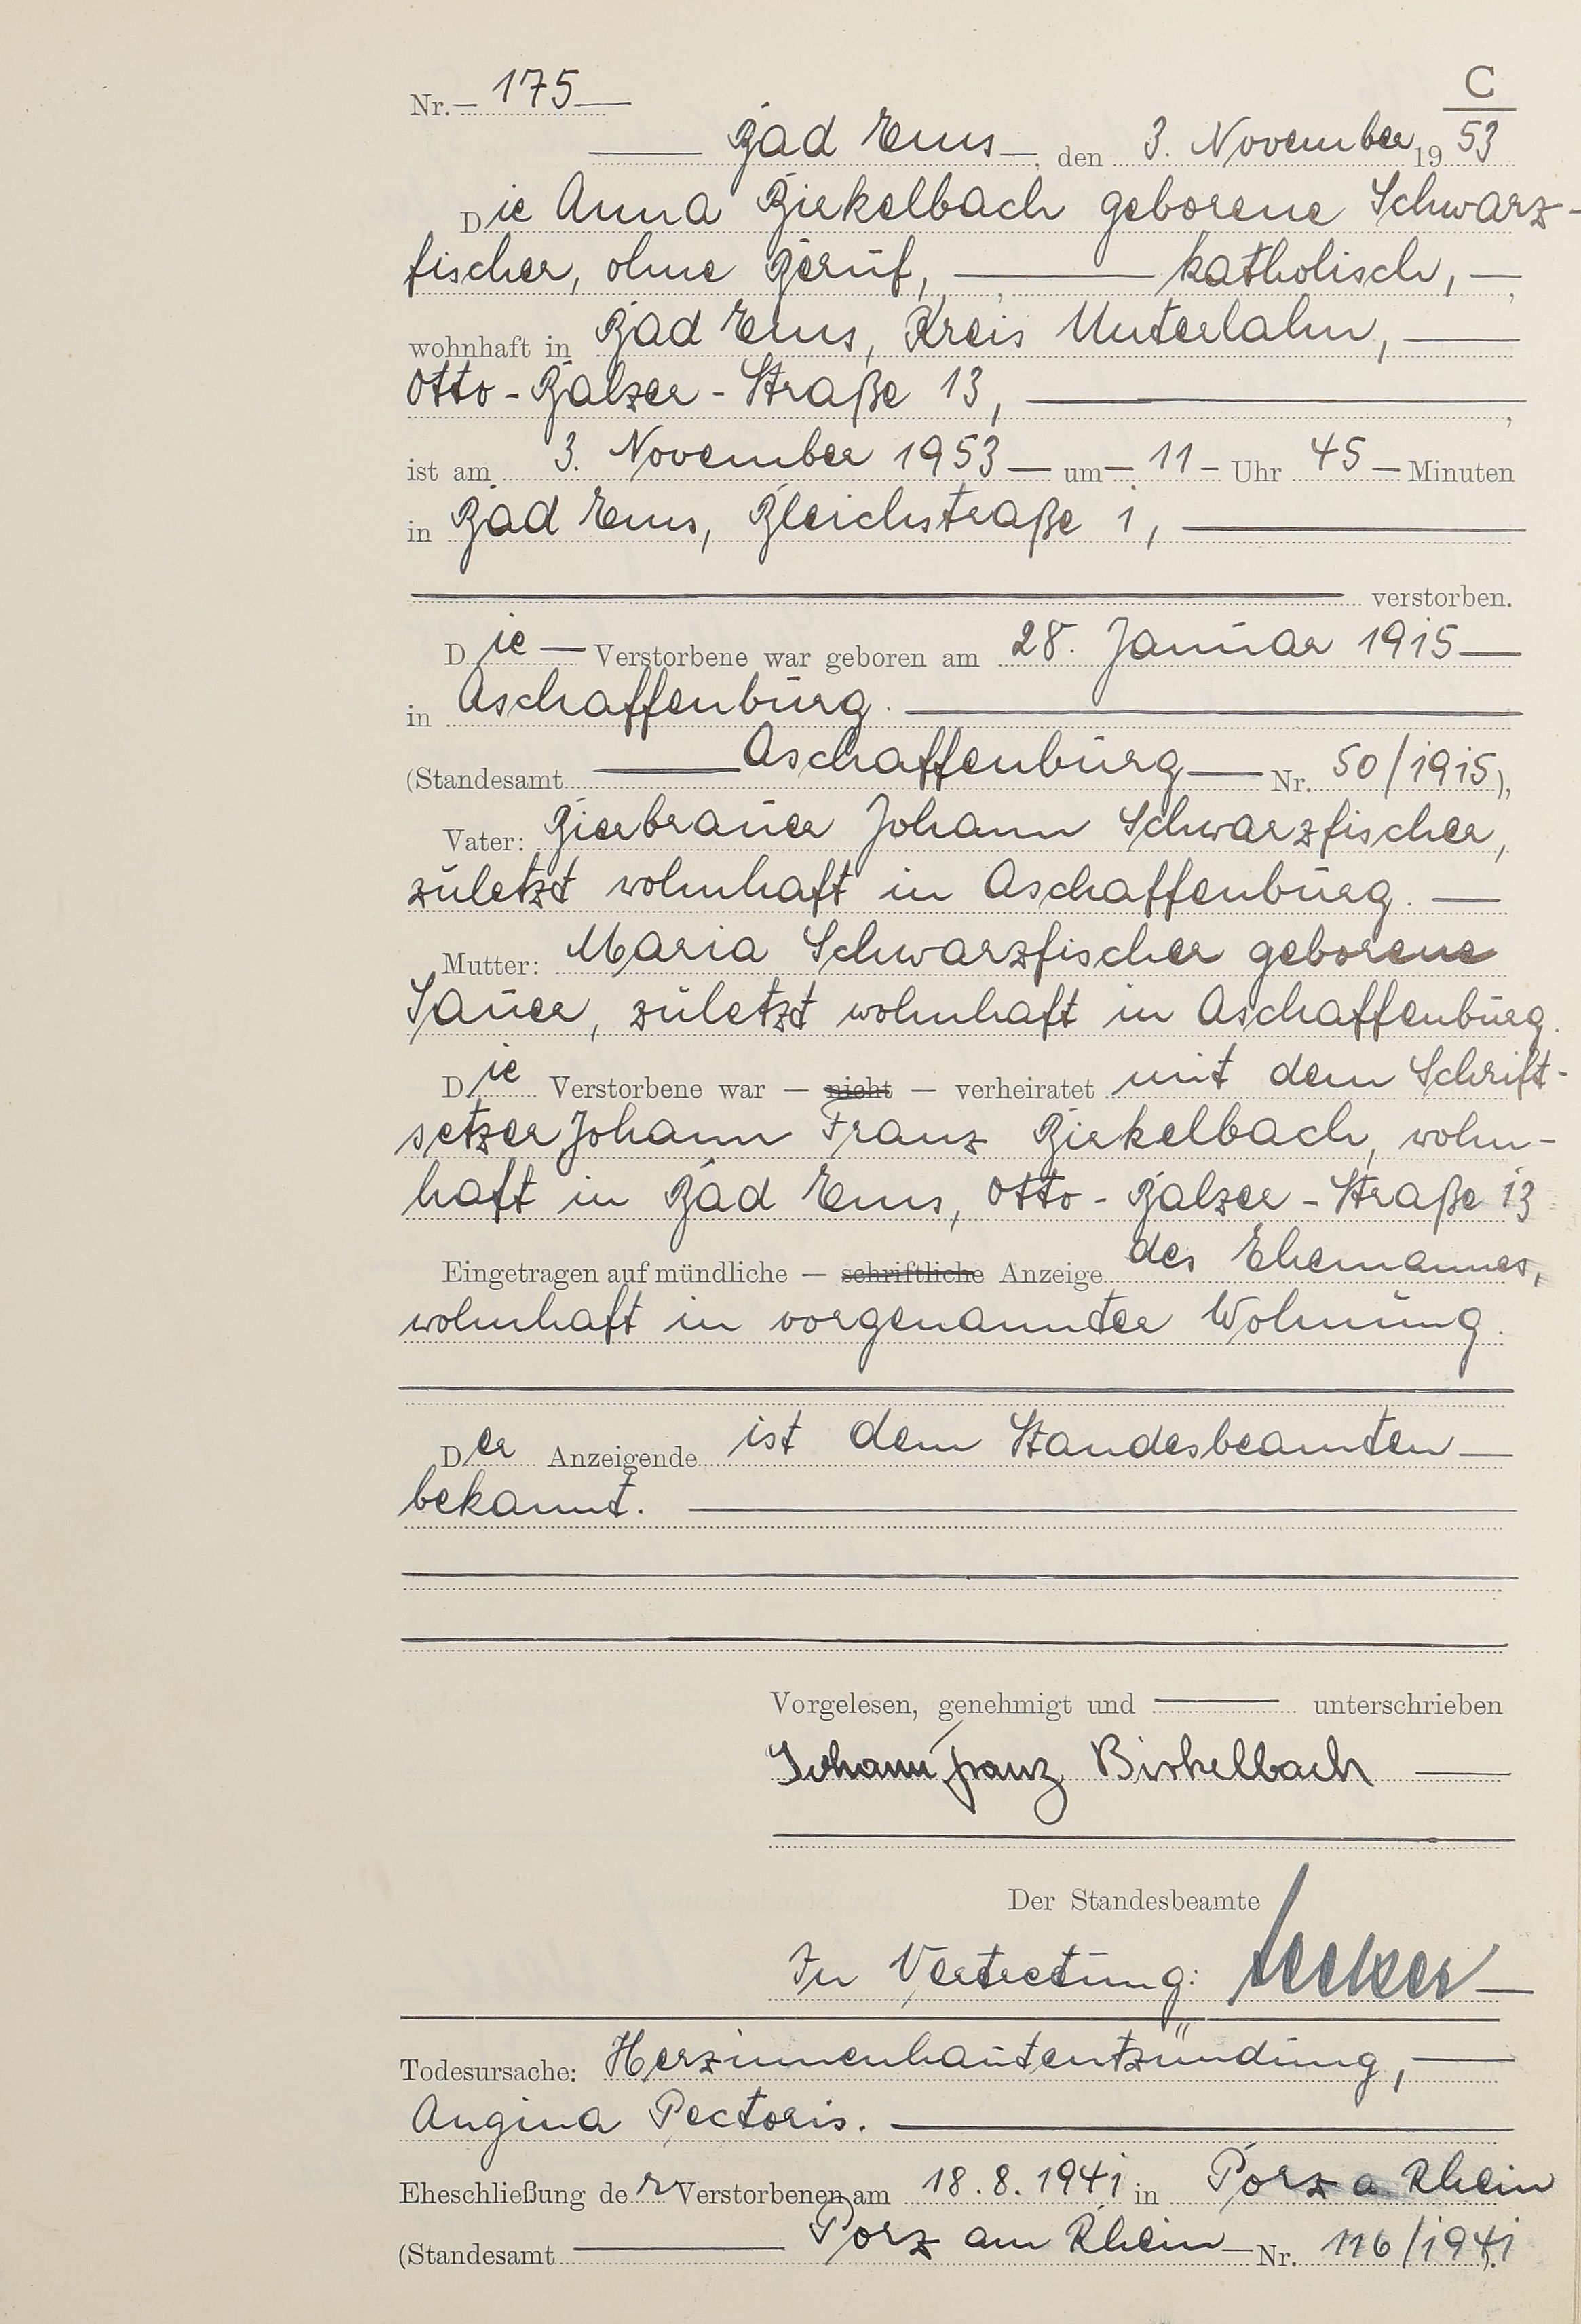 C
Nr. 175
Bad Ems, den 3. November 1953
Die Anna Birkelbach geborene Schwarz-
fischer, ohne Beruf, katholisch,
wohnhaft in Bad Ems, Kreis Unterlahn,
Otto-Balzer-Straße 13,
ist am 3. November 1953 um 11 Uhr 45 Minuten
in Bad Ems, Bleichstraße 1,
verstorben.
Die Verstorbene war geboren am 28. Januar 1915
in Aschaffenburg.
(Standesamt Aschaffenburg Nr. 50/1915),
Vater: Bierbrauer Johann Schwarzfischer,
zuletzt wohnhaft in Aschaffenburg.
Mutter: Maria Schwarzfischer geborene
Sauer, zuletzt wohnhaft in Aschaffenburg.
Die Verstorbene war — nicht — verheiratet mit dem Schrift-
setzer Johann Franz Birkelbach, wohn-
haft in Bad Ems, Otto-Balzer-Straße 13
Eingetragen auf mündliche — schriftliche Anzeige des Ehemannes,
wohnhaft in vorgenannter Wohnung.
Der Anzeigende ist dem Standesbeamten
bekannt.
Vorgelesen, genehmigt und unterschrieben
Johann Franz Birkelbach
Der Standesbeamte
In Vertretung:
Todesursache: Herzinnenhautentzündung,
Angina Pectoris.
Eheschließung der Verstorbenen am 18.8.1941 in Porz a. Rhein
(Standesamt Porz am Rhein Nr. 116/1941).